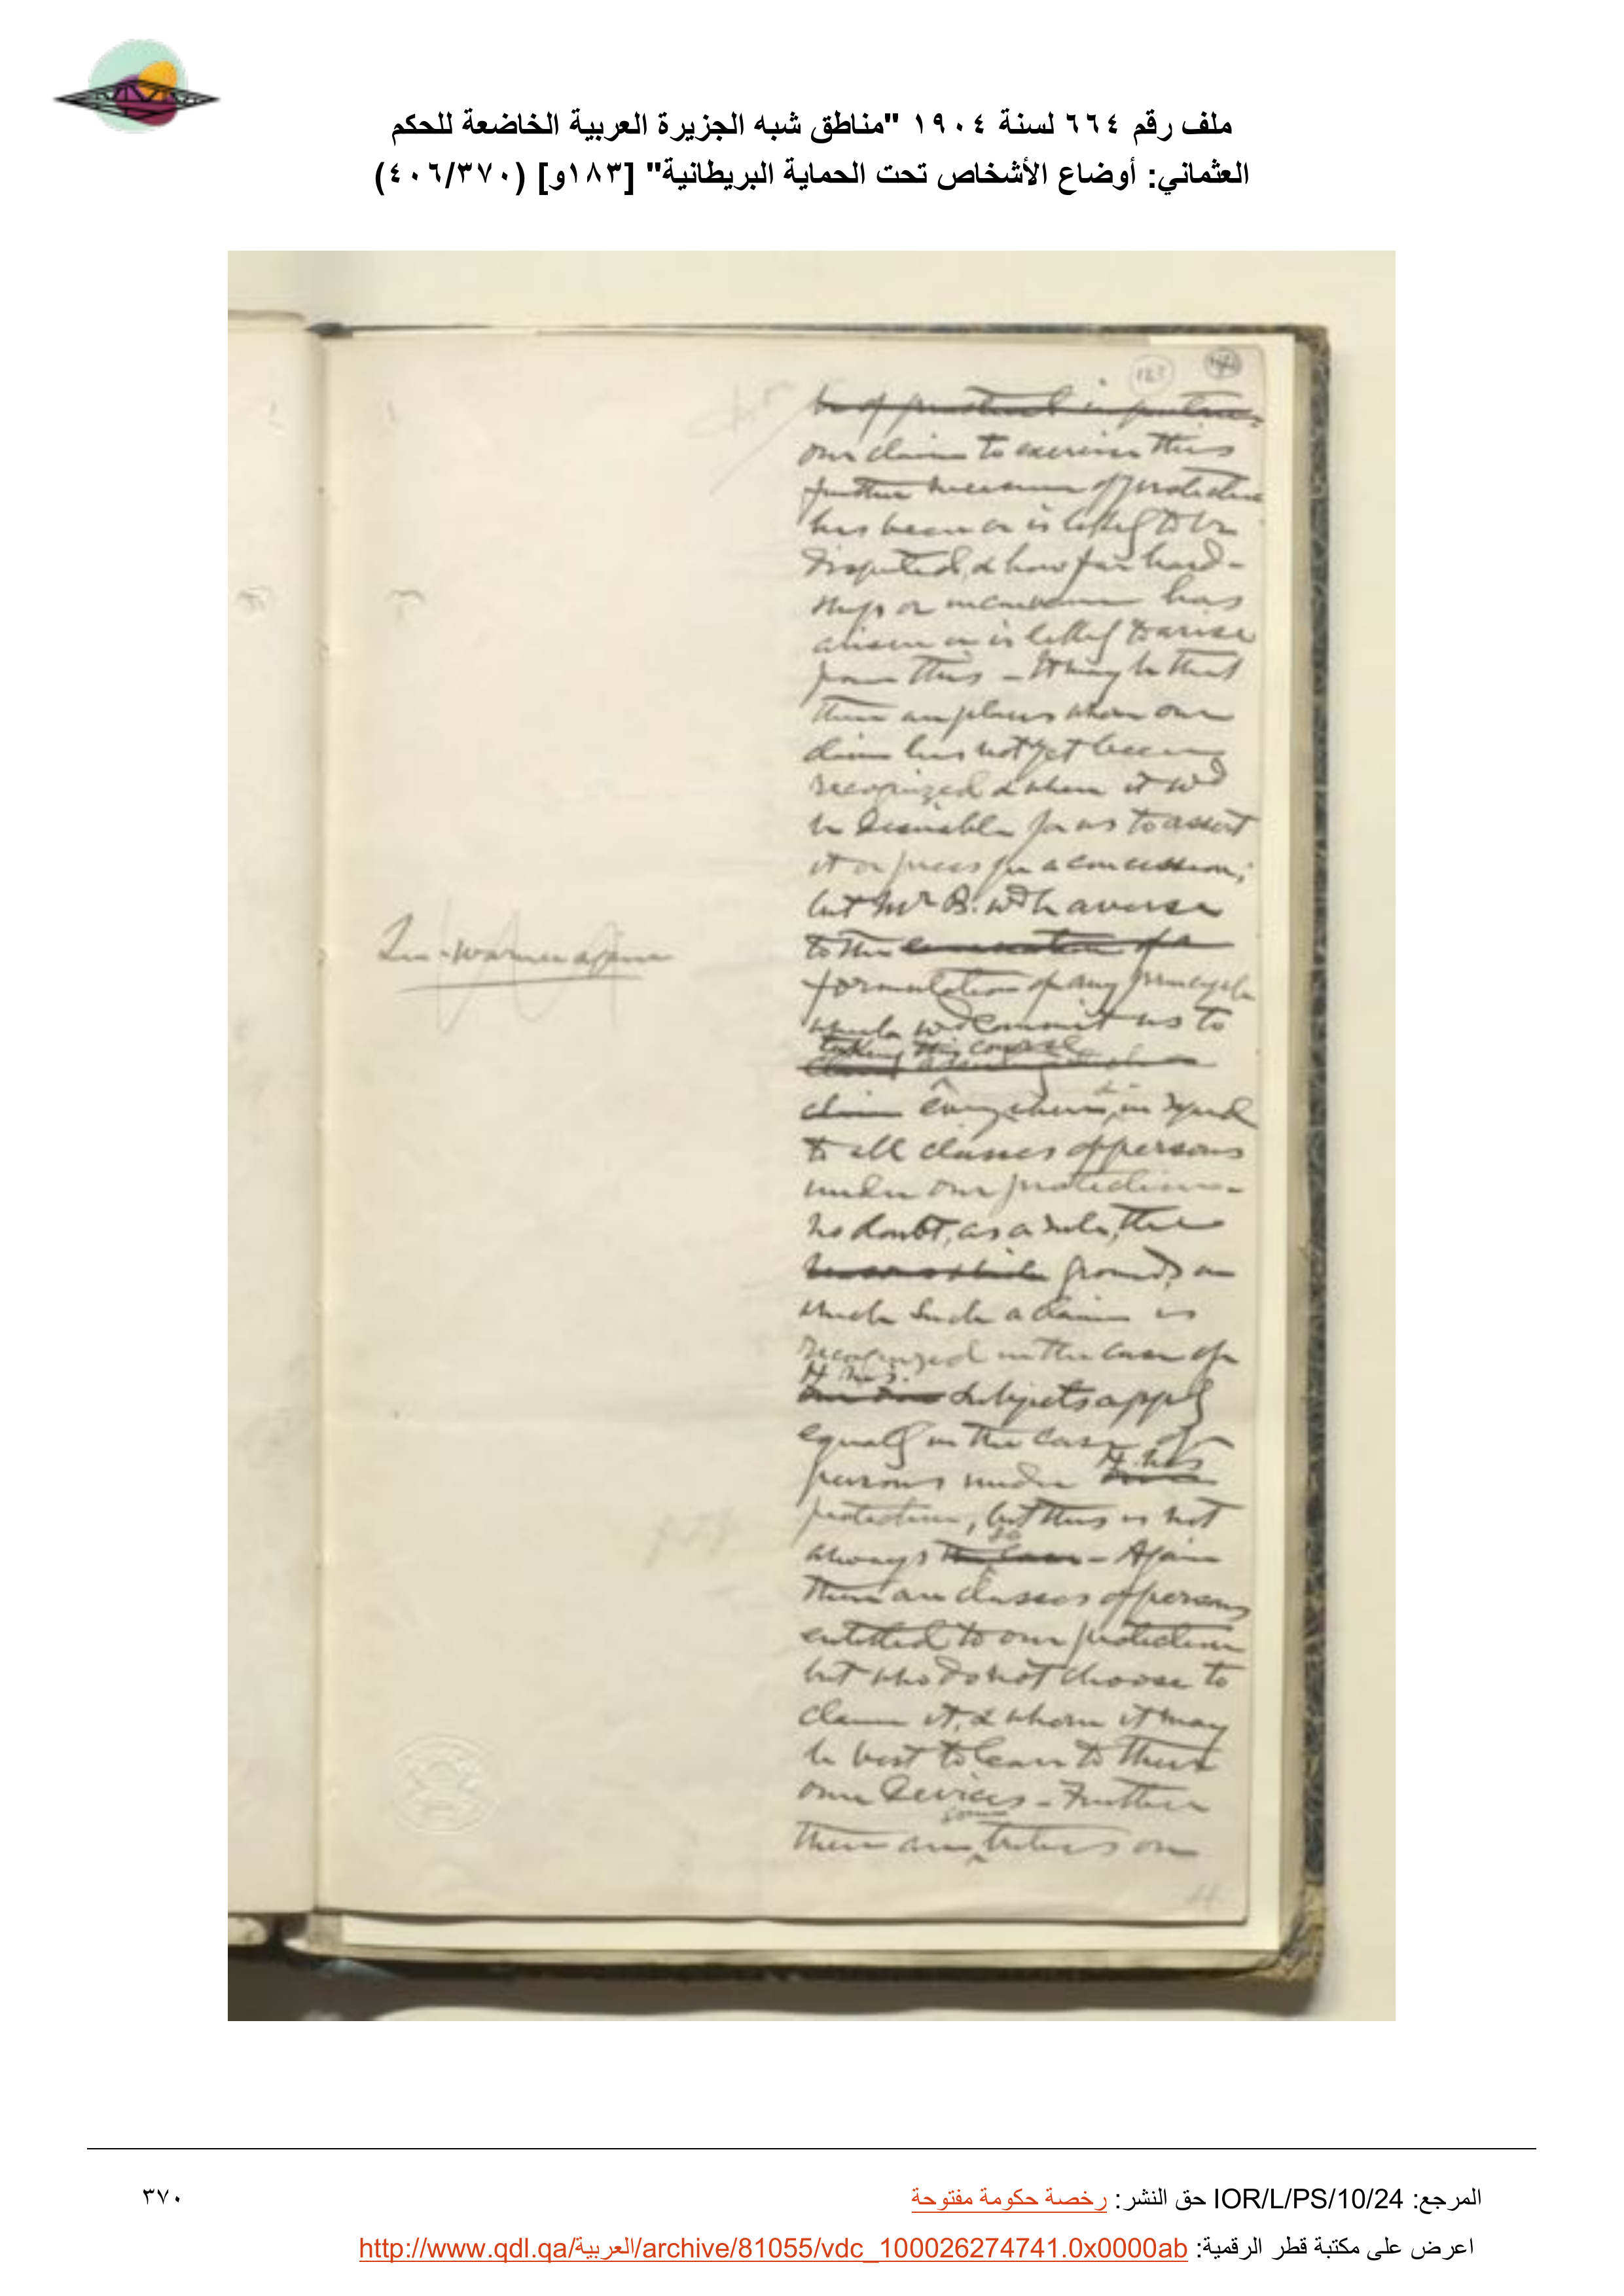 ملف رقم ٦٦٤ لسنة ١٩٠٤ "مناطق شبه الجزيرة العربية الخاضعة للحكم
العثماني: أوضاع الأشخاص تحت الحماية البريطانية" [١٨٣و] (٤٠٦/٣٧٠)
183
be of practical importance
our claim to exercise this
further measure of protection
has been or is likely to be
disputed, & how far hard-
ship or inconvenience has
arisen or is likely to arise
from this - It may be that
there are places where our
claim has not yet been
recognized & where it wd
be desirable for us to assert
it or press for a concession;
but Mr B. wd be averse
to the
formulation of any principle
which wd commit us to
taking this course
claim everywhere & in regard
to all classes of persons
under our protection -
No doubt, as a rule, the
grounds on
which such a claim is
recognized in the case of
H.M's.
subjects apply
equally in the case of
persons under H.M's
protection, but this is not
always so - Again
there are classes of persons
entitled to our protection
but who do not choose to
claim it, & whom it may
be best to leave to their
own devices - Further
there are some tribes on
المرجع: IOR/L/PS/10/24 حق النشر: رخصة حكومة مفتوحة
٣٧٠
اعرض على مكتبة قطر الرقمية: http://www.qdl.qa/العربية/archive/81055/vdc_100026274741.0x0000ab